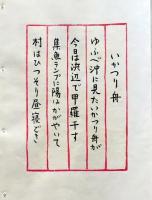 いかつり舟
ゆふべ沖に見たいかつり舟が
今日は浜辺で甲羅干す
集魚ランプに陽はかがやいて
村はひつそり昼寝どき